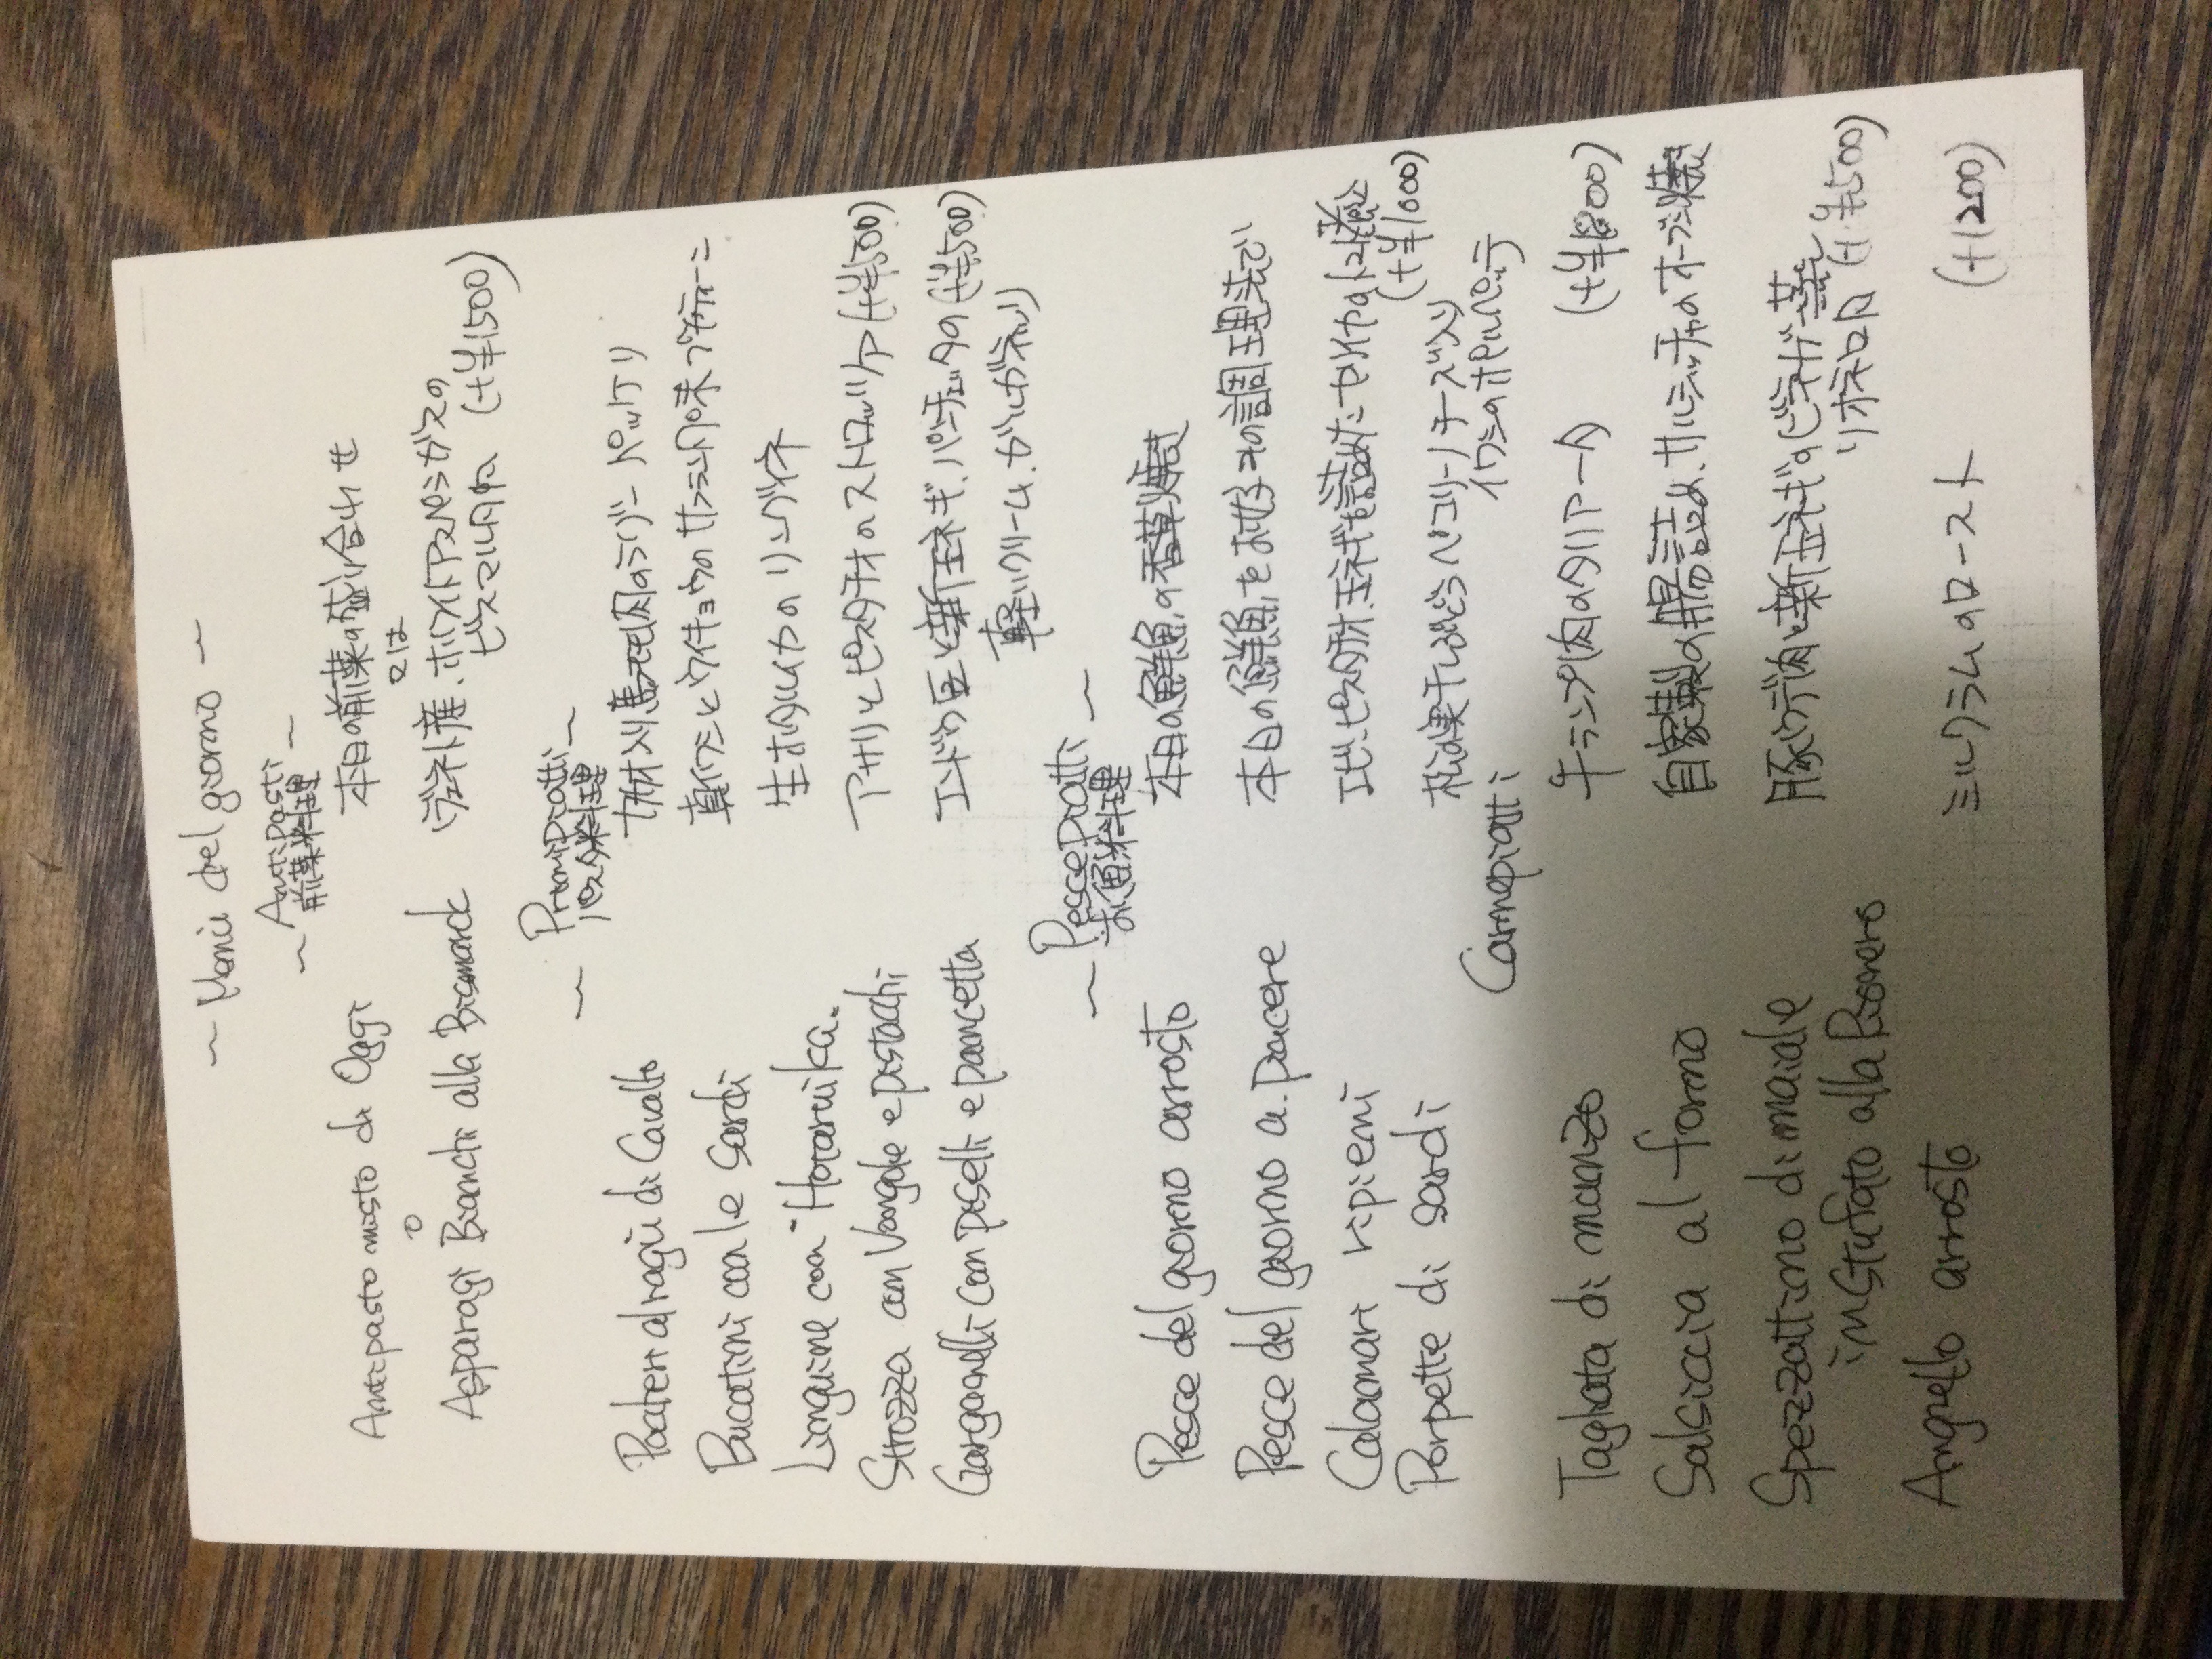 ~ Menù del giorno ~
~ Antipasti ~
前菜料理
Antipasto misto di Oggi 本日の前菜の盛り合わせ
o 又は
Asparagi Bianchi alla Bismarck ヴェネト産、ホワイトアスパラガスの
ビスマルク風 (+¥1500)
~ Primi piatti ~
パスタ料理
Paccheri al ragù di Cavallo 馬モモ肉のラグー パッケリ
Bucatini con le Sardi 真イワシとウイキョウのサフラン風味 ブカティーニ
Linguine con Hotaruika. 生ホタルイカのリングイネ
Strozza con Vongole e pistachi アサリとピスタチオのストロッツァ (+¥500)
Garganelli con piselli e pancetta エンドウ豆と新玉ネギ、パンチェッタの (+¥500)
軽いクリーム、ガルガネッリ
~ Pesce piatti ~
お魚料理
Pesce del giorno arrosto 本日の鮮魚の香草焼き
Pesce del giorno a piacere 本日の鮮魚をお好みの調理法で
Calamari ripieni エビ、ピスタチオ、玉ネギを詰めたヤリイカのトマト煮込 (+¥1000)
Porpette di sardi 松の実 干しぶどう ペコリーノチーズ入り
イワシのポルペッテ
Carne piatti
Tagliata di manzo 牛ランプ肉のタリアータ (+¥1800)
Salsiccia al forno 自家製の腸詰め、サルシッチャのオーブン焼き
Spezzattino di maiale 豚ウデ肉と新玉ネギのビネガー蒸し
in Stufato alla Rionero リオネロ風 (+¥500)
Angnello arrosto ミルクラムのロースト (+1200)